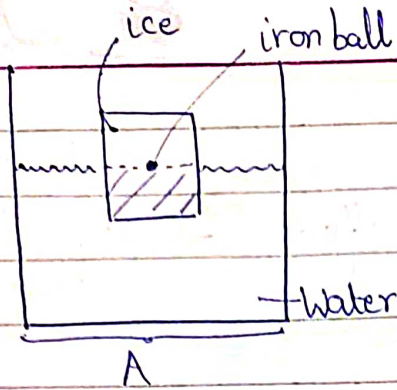 ice
iron ball
Water
A